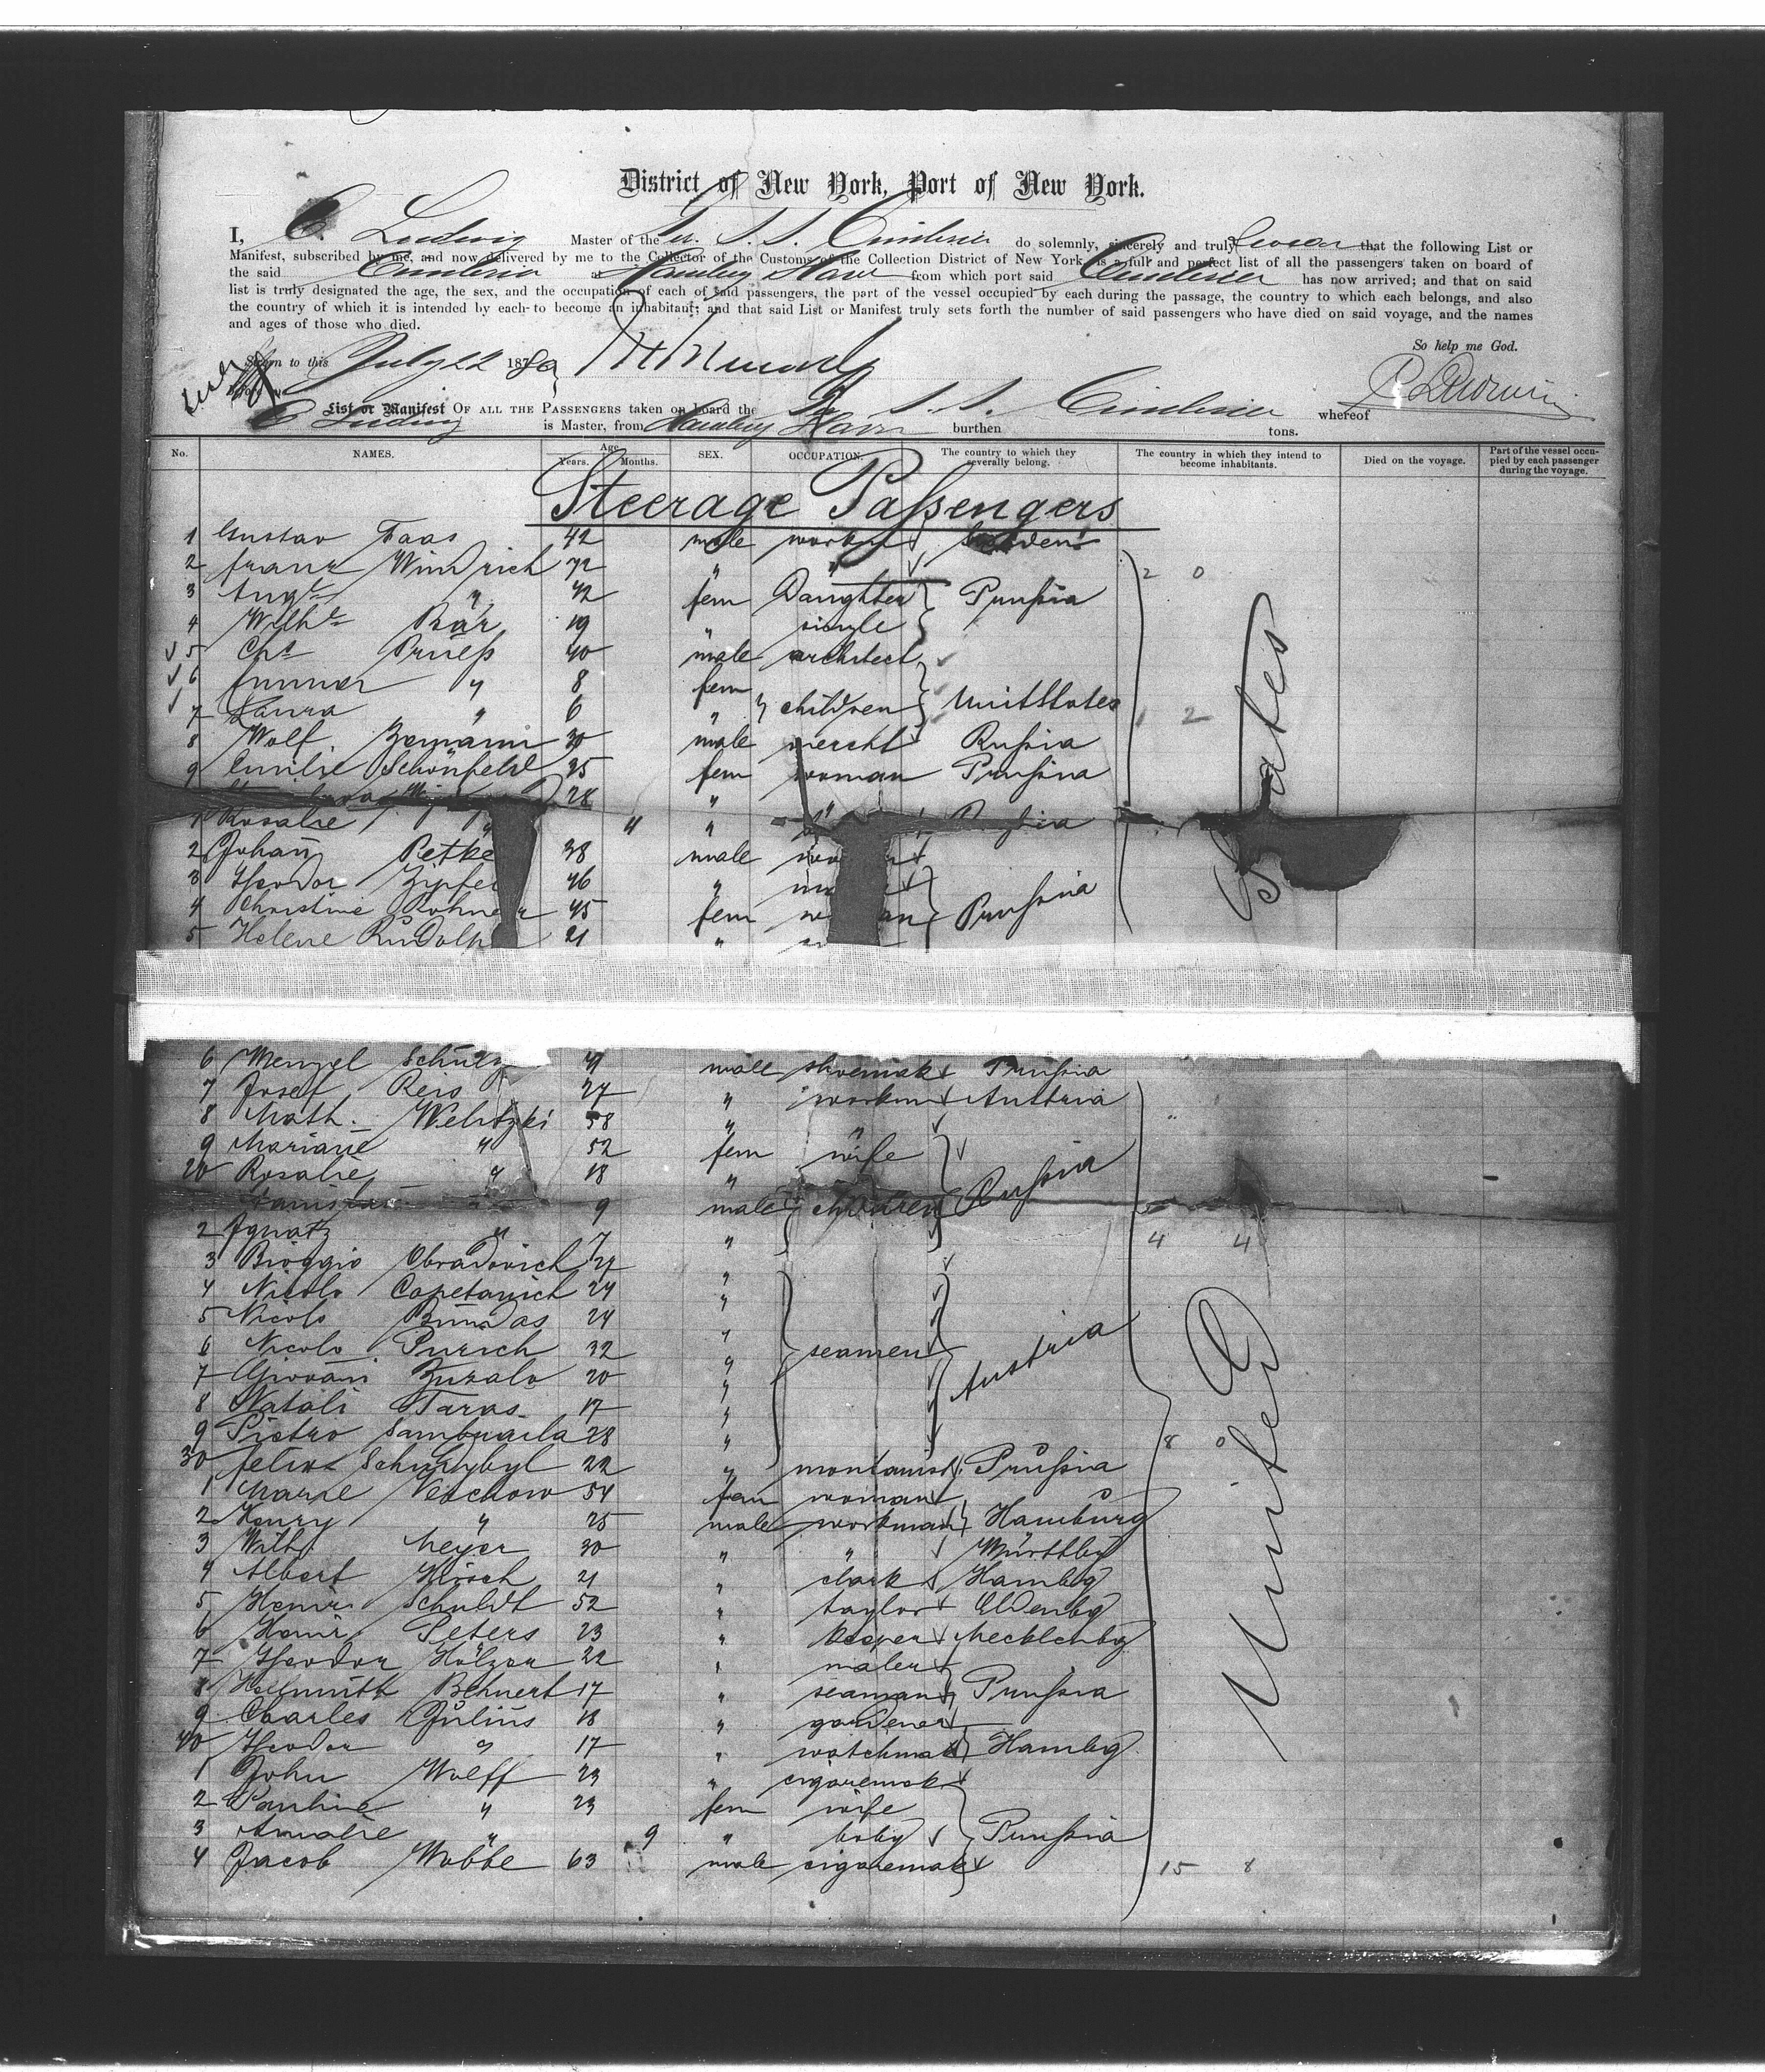 District of New York, Port of New York.
I, C. Ludwig Master of the Gr. S. S. Cimbria do solemnly, sincerely and truly swear that the following List or
Manifest, subscribed by me, and now delivered by me to the Collector of the Customs of the Collection District of New York, is a full and perfect list of all the passengers taken on board of
the said Cimbria Hamburg Havre from which port said Cimbria has now arrived; and that on said
list is truly designated the age, the sex, and the occupation of each of said passengers, the part of the vessel occupied by each during the passage, the country to which each belongs, and also
the country of which it is intended by each to become an inhabitant; and that said List or Manifest truly sets forth the number of said passengers who have died on said voyage, and the names
and ages of those who died.
So help me God.
Sworn to this July 22 1880
C Ludwig
List or Manifest OF ALL THE PASSENGERS taken on board the S. S. Cimbria whereof
C Ludwig is Master, from Hamburg Havre burthen tons.
No. NAMES. Age Years. Months. SEX. OCCUPATION. The country to which they severally belong. The country in which they intend to become inhabitants. Died on the voyage. Part of the vessel occupied by each passenger during the voyage.
Steerage Passengers
1 Gustav Faas 42 male workm Sweden
2 Franz Windrich 72 " "
3 Aug. " 42 fem Daughter Prussia
4 Wilh. Bär 19 " single
5 Chs Pruess 40 male architect
6 " 8 fem
7 Laura " 6 " children Unit States
8 Wolf 30 male mercht Russia
9 Emilie Schönfeld 25 fem woman Prussia
28 "
1 Rosalie " 4 " Russia
2 Johan Petke 38 male
3 Theodor Zipfel 46 "
4 Christine Rohne 45 fem Prussia
5 Helene Rudolph 21 "
6 Menzel Schulz male shoemak Prussia
7 Josef Reis 27 " workm Austria
8 Math. Welitzki 58 " "
9 Mariane " 52 fem wife
20 Rosalie " 18 " Russia
9 male children
2 Ignatz " 7 "
3 Bioggio Obradovich "
4 Nicolo Capetanich 24 "
5 Nicolo Bundas 24 "
6 Nicolo Purich 32 " seamen
7 Giovani Zuzalo 20 " Austria
8 Natali Taras 17 "
9 Pietro Sambuaila 28 "
30 Felix 22 " montanist Prussia
1 Marie Veschow 54 fem woman
2 Henry " 25 male workman Hamburg
3 Wilh. Meyer 30 " " Württbg
4 Albert Hirsch 21 " clark Hambg
5 Heinr. Schuldt 52 " taylor Oldenbg
6 Heinr. Peters 23 " keeper Mecklenbg
7 Theodor Hölzer 22 " maler
8 Hellmuth Behnert 17 " seaman Prussia
9 Charles Julius 18 " gardener
40 Theodor " 17 " watchmak Hambg
1 John Wolff 23 " cigaremak
2 Pauline " 23 fem wife
3 Amalie " 9 " baby Prussia
4 Jacob Wobbe 63 male cigaremak
United States
2 0
1 2
4 4
8 0
15 8